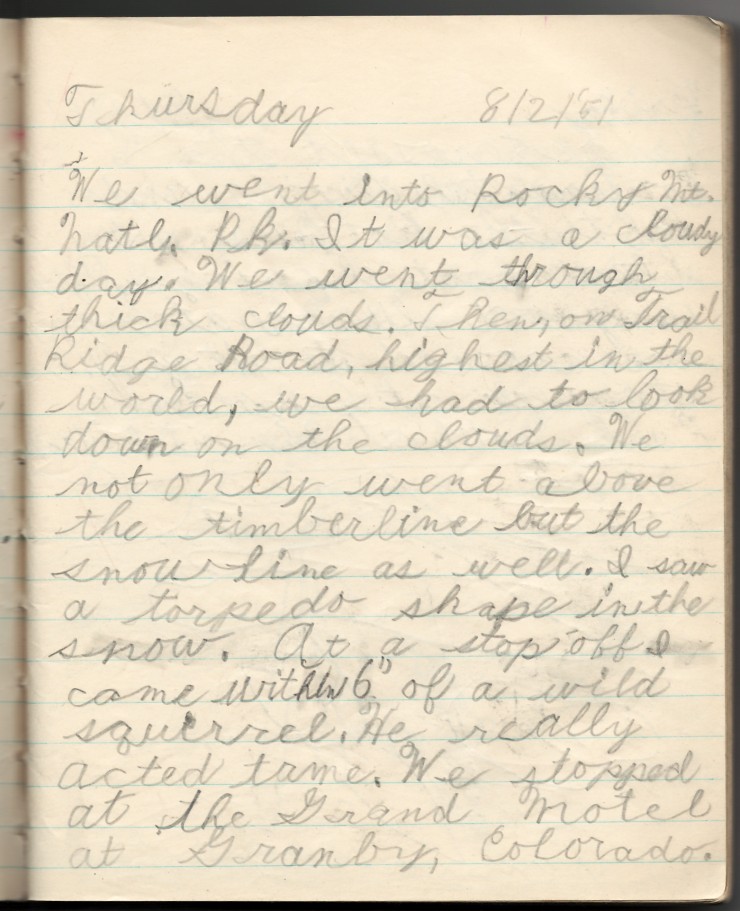 Thursday 8/2/'51
We went into Rocky Mt.
Natl. Pk. It was a cloudy
day. We went through
thick clouds. Then, on Trail
Ridge Road, highest in the
world, we had to look
down on the clouds. We
not only went above
the timberline but the
snow line as well. I saw
a torpedo shape in the
snow. At a stop off I
came within 6" of a wild
squirrel. He really
acted tame. We stopped
at the Grand Motel
at Granby, Colorado.